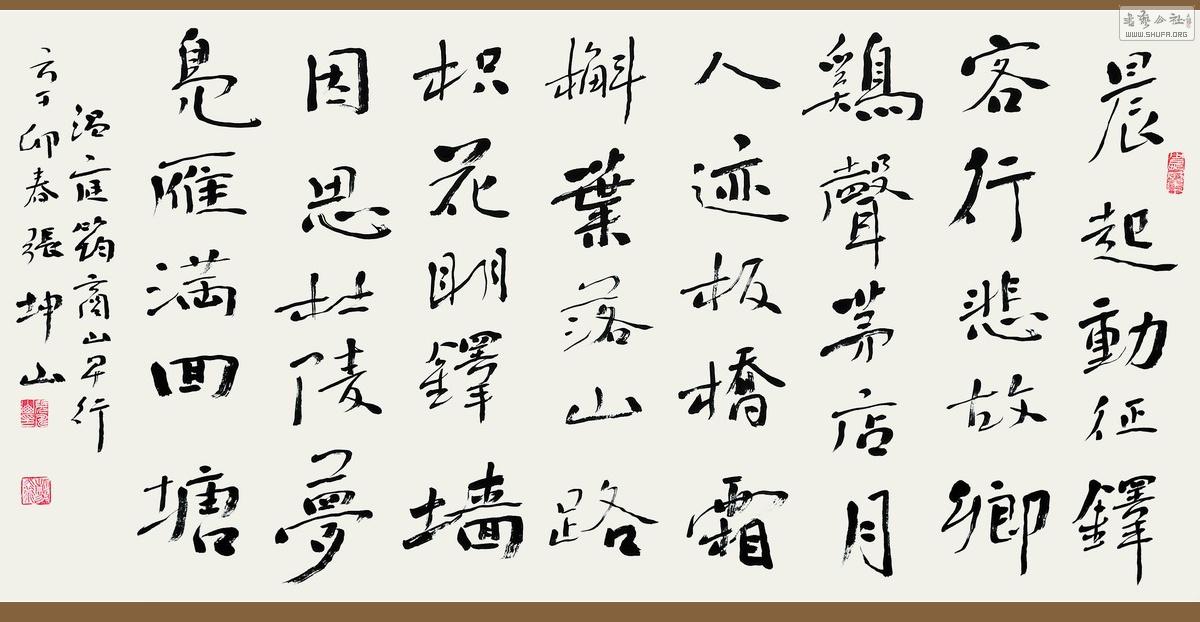 晨起動征鐸
客行悲故鄉
鷄聲茅店月
人迹板橋霜
槲葉落山路
枳花明驛墙
因思杜陵夢
鳧雁满回塘
温庭筠商山早行
辛卯春張坤山
WWW.SHUFA.ORG